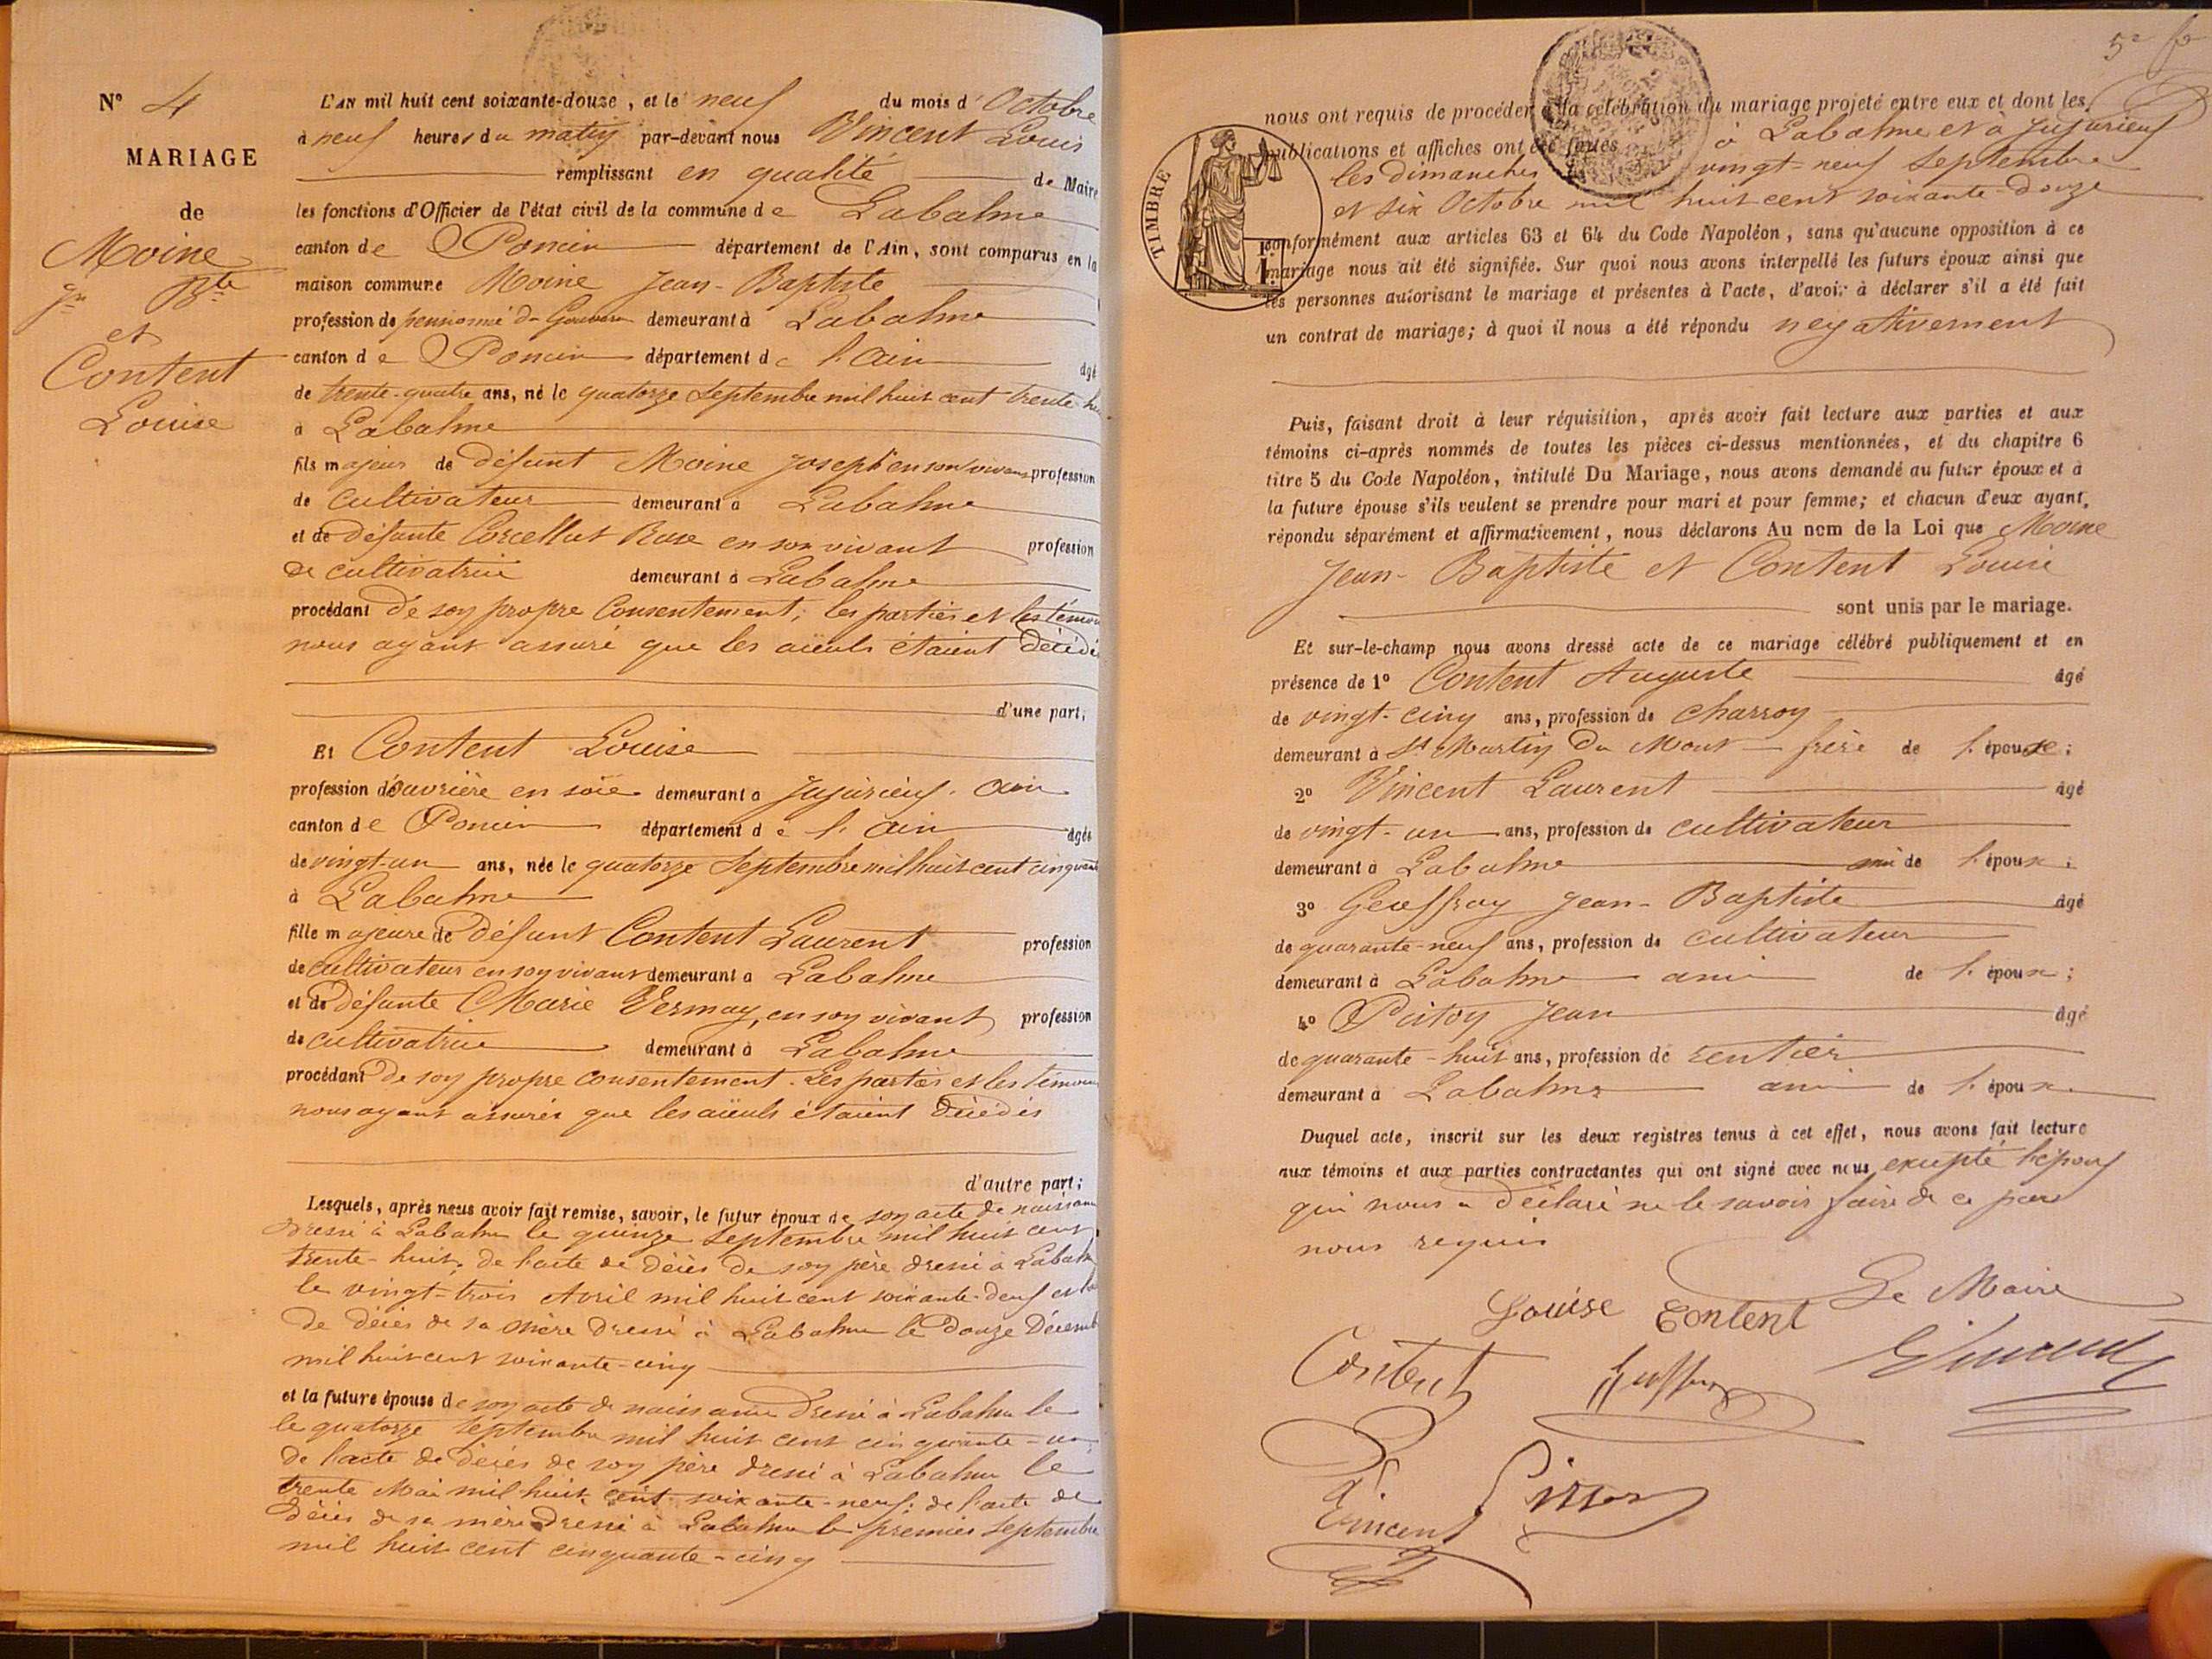 N° 4
MARIAGE
de
Moine
Jn Bte
et
Content
Louise
L'AN mil huit cent soixante-douze, et le neuf du mois d'Octobre
à neuf heures du matin par-devant nous Vincent Louis
remplissant en qualité de Maire
les fonctions d'Officier de l'état civil de la commune de Labalme
canton de Poncin département de l'Ain, sont comparus en la
maison commune Moine Jean-Baptiste
profession de pensionné du demeurant à Labalme
canton de Poncin département de l'Ain âgé
de trente-quatre ans, né le quatorze Septembre mil huit cent trente-hu
à Labalme
fils majeur de défunt Moine Joseph en son vivant profession
de cultivateur demeurant à Labalme
et de défunte Rose en son vivant profession
de cultivatrice demeurant à Labalme
procédant de son propre consentement; les parties et les témoi
nous ayant assuré que les aïeuls étaient décédé
d'une part;
Et Content Louise
profession d'ouvrière en soie demeurant à Jujurieux. Ain
canton de Poncin département de l'Ain âgée
de vingt-un ans, née le quatorze Septembre mil huit cent cinquante
à Labalme
fille majeure de défunt Content Laurent profession
de cultivateur en son vivant demeurant à Labalme
et de défunte Marie Vermay, en son vivant profession
de cultivatrice demeurant à Labalme
procédant de son propre consentement. Les parties et les témoins
nous ayant assurés que les aïeuls étaient décédés
d'autre part;
Lesquels, après nous avoir fait remise, savoir, le futur époux de son acte de naissance
dressé à Labalme le quinze Septembre mil huit cent
trente-huit; de l'acte de décès de son père dressé à Labalm
le vingt-trois Avril mil huit cent soixante-deux et
de décès de sa mère dressé à Labalme le douze Décemb
mil huit cent soixante-cinq
et la future épouse de son acte de naissance dressé à Labalme le
le quatorze Septembre mil huit cent cinquante-un
de l'acte de décès de son père dressé à Labalme le
trente Mai mil huit cent soixante-neuf; de l'acte de
décès de sa mère dressé à Labalme le premier Septembre
mil huit cent cinquante-cinq
nous ont requis de procéder à la célébration du mariage projeté entre eux et dont les
publications et affiches ont été faites à Labalme et à Jujurieux
les dimanches vingt-neuf Septembre
et six Octobre mil huit cent soixante-douze
conformément aux articles 63 et 64 du Code Napoléon, sans qu'aucune opposition à ce
mariage nous ait été signifiée. Sur quoi nous avons interpellé les futurs époux ainsi que
les personnes autorisant le mariage et présentes à l'acte, d'avoir à déclarer s'il a été fait
un contrat de mariage; à quoi il nous a été répondu négativement
TIMBRE
Puis, faisant droit à leur réquisition, après avoir fait lecture aux parties et aux
témoins ci-après nommés de toutes les pièces ci-dessus mentionnées, et du chapitre 6
titre 5 du Code Napoléon, intitulé Du Mariage, nous avons demandé au futur époux et à
la future épouse s'ils veulent se prendre pour mari et pour femme; et chacun d'eux ayant
répondu séparément et affirmativement, nous déclarons Au nom de la Loi que Moine
Jean-Baptiste et Content Louise
sont unis par le mariage.
Et sur-le-champ nous avons dressé acte de ce mariage célébré publiquement et en
présence de 1° Content Auguste âgé
de vingt-cinq ans, profession de charron
demeurant à St Martin du Mont frère de l'épouse;
2° Vincent Laurent âgé
de vingt-un ans, profession de cultivateur
demeurant à Labalme ami de l'époux;
3° Geoffray Jean-Baptiste âgé
de quarante-neuf ans, profession de cultivateur
demeurant à Labalme ami de l'époux;
4° Jean âgé
de quarante-huit ans, profession de rentier
demeurant à Labalme ami de l'époux.
Duquel acte, inscrit sur les deux registres tenus à cet effet, nous avons fait lecture
aux témoins et aux parties contractantes qui ont signé avec nous excepté l'époux
qui nous a déclaré ne le savoir faire de ce par
nous requis
Le Maire
Louise Content
Content Vincent
Vincent